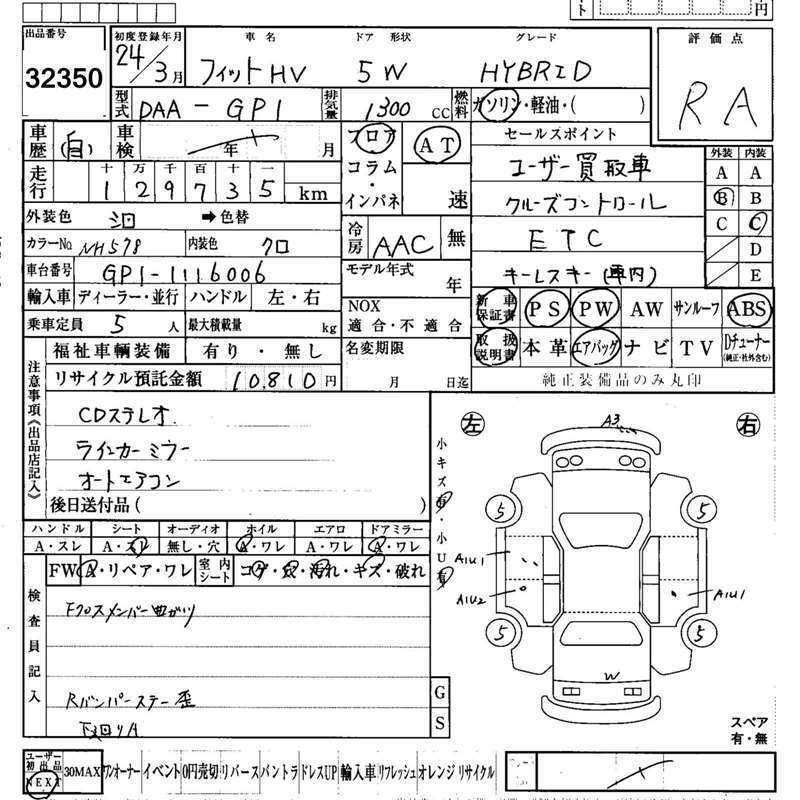 ト 円
出品番号 初度登録年月 車名 ドア 形状 グレード 評価点
32350 24年/3月 フィットHV 5W HYBRID RA
型式 DAA-GP1 排気量 1300cc 燃料 ガソリン・軽油・( )
車歴 自 車検 年 月 フロア AT セールスポイント
外装 内装
走行 十 万 千 百 十 一 コラム・インパネ 速 ユーザー買取車
129735 km クルーズコントロール
A A
B B
C C
D
E
外装色 シロ ➡色替 冷房 AAC 無 ETC
カラーNo NH578 内装色 クロ
車台番号 GP1-1116006 モデル年式 年 キーレスキー(車内)
輸入車 ディーラー・並行 ハンドル 左・右 NOX 適合・不適合 新車保証書 PS PW AW サンルーフ ABS
乗車定員 5人 最大積載量 kg 取扱説明書 本革 エアバッグ ナビ TV Dチューナー(純正・社外含む)
福祉車輌装備 有り・無し 名変期限 月 日迄 純正装備品のみ丸印
リサイクル預託金額 10,810円
注意事項《出品店記入》
CDステレオ
ウインカーミラー
オートエアコン
後日送付品( )
ハンドル シート オーディオ ホイル エアロ ドアミラー
A・スレ A・スレ 無し・穴 A・ワレ A・ワレ A・ワレ
FW A・リペア・ワレ 室内シート コゲ・穴・汚れ・キズ・破れ
検査員記入
Fクロスメンバー曲がり
Rバンパーステー歪
下廻りA
G
S
小キズ有・小U有
左 右
A3
5 5
A1U1
A1U2 A1U1
5 5
W
スペア
有・無
ユーザー初出品 NEXT 30MAX ワンオーナー イベント 0円売切 リバース バントラ ドレスUP 輸入車 リフレッシュ オレンジ リサイクル